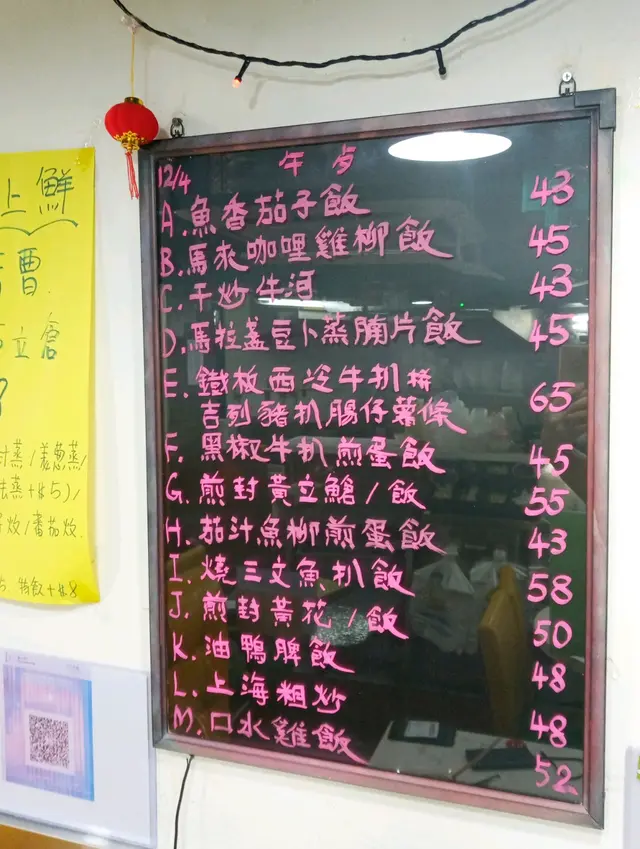 上鮮
曹
立倉
封蒸/薑蔥蒸/
蒸+$5)/
炆/番茄炆.
特飲+$8
12/4 午步
A.魚香茄子飯 43
B.馬來咖哩雞柳飯 45
C.干炒牛河 43
D.馬拉盞豆卜蒸腩片飯 45
E.鐵板西冷牛扒拼 65
吉列豬扒腸仔薯條
F.黑椒牛扒煎蛋飯 45
G.煎封黃立鯧/飯 55
H.茄汁魚柳煎蛋飯 43
I.燒三文魚扒飯 58
J.煎封黃花/飯 50
K.油鴨脾飯 48
L.上海粗炒 48
M.口水雞飯 52